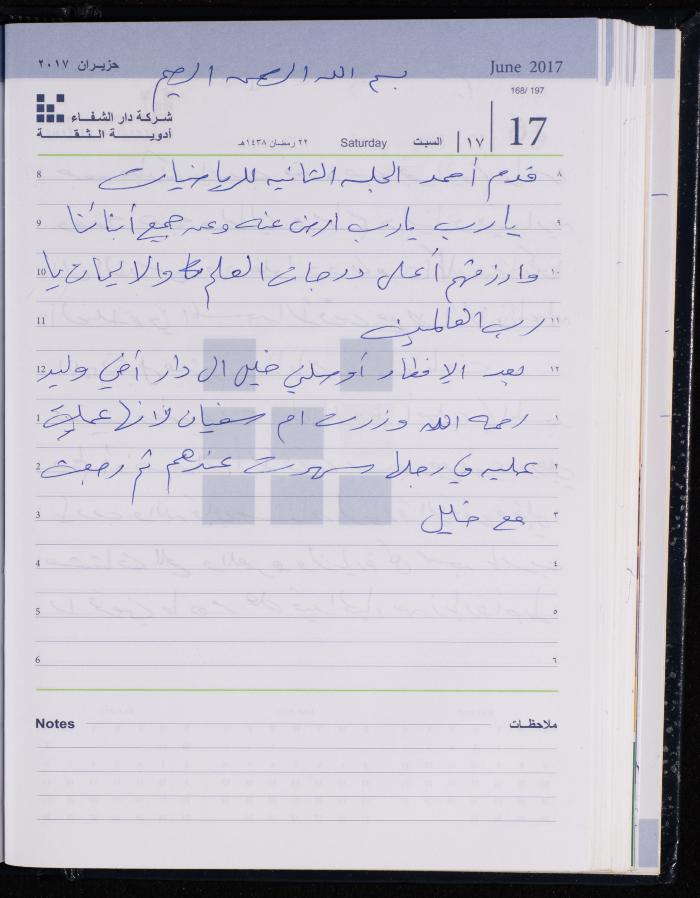 حزيران ٢٠١٧
June 2017
بسم الله الرحمن الرحيم
168/ 197
شركة دار الشفاء
أدوية الثقة
٢٢ رمضان ١٤٣٨هـ
Saturday
السبت
١٧
17
8 قدم أحمد الجلسه الثانيه للرياضيات ٨
9 يارب يارب ارض عنه وعن جميع أبنائنا ٩
10 وارزقهم أعلى درجات العلم والايمان يا ١٠
11 رب العالمين ١١
12 بعد الإفطار أوصلني خليل ال دار أخي وليد ١٢
1 رحمه الله وزرت ام سفيان لانها عملت ١
2 عمليه في رجلها سهرت عندهم ثم رجعت ٢
3 مع خليل ٣
4 ٤
5 ٥
6 ٦
Notes ملاحظات